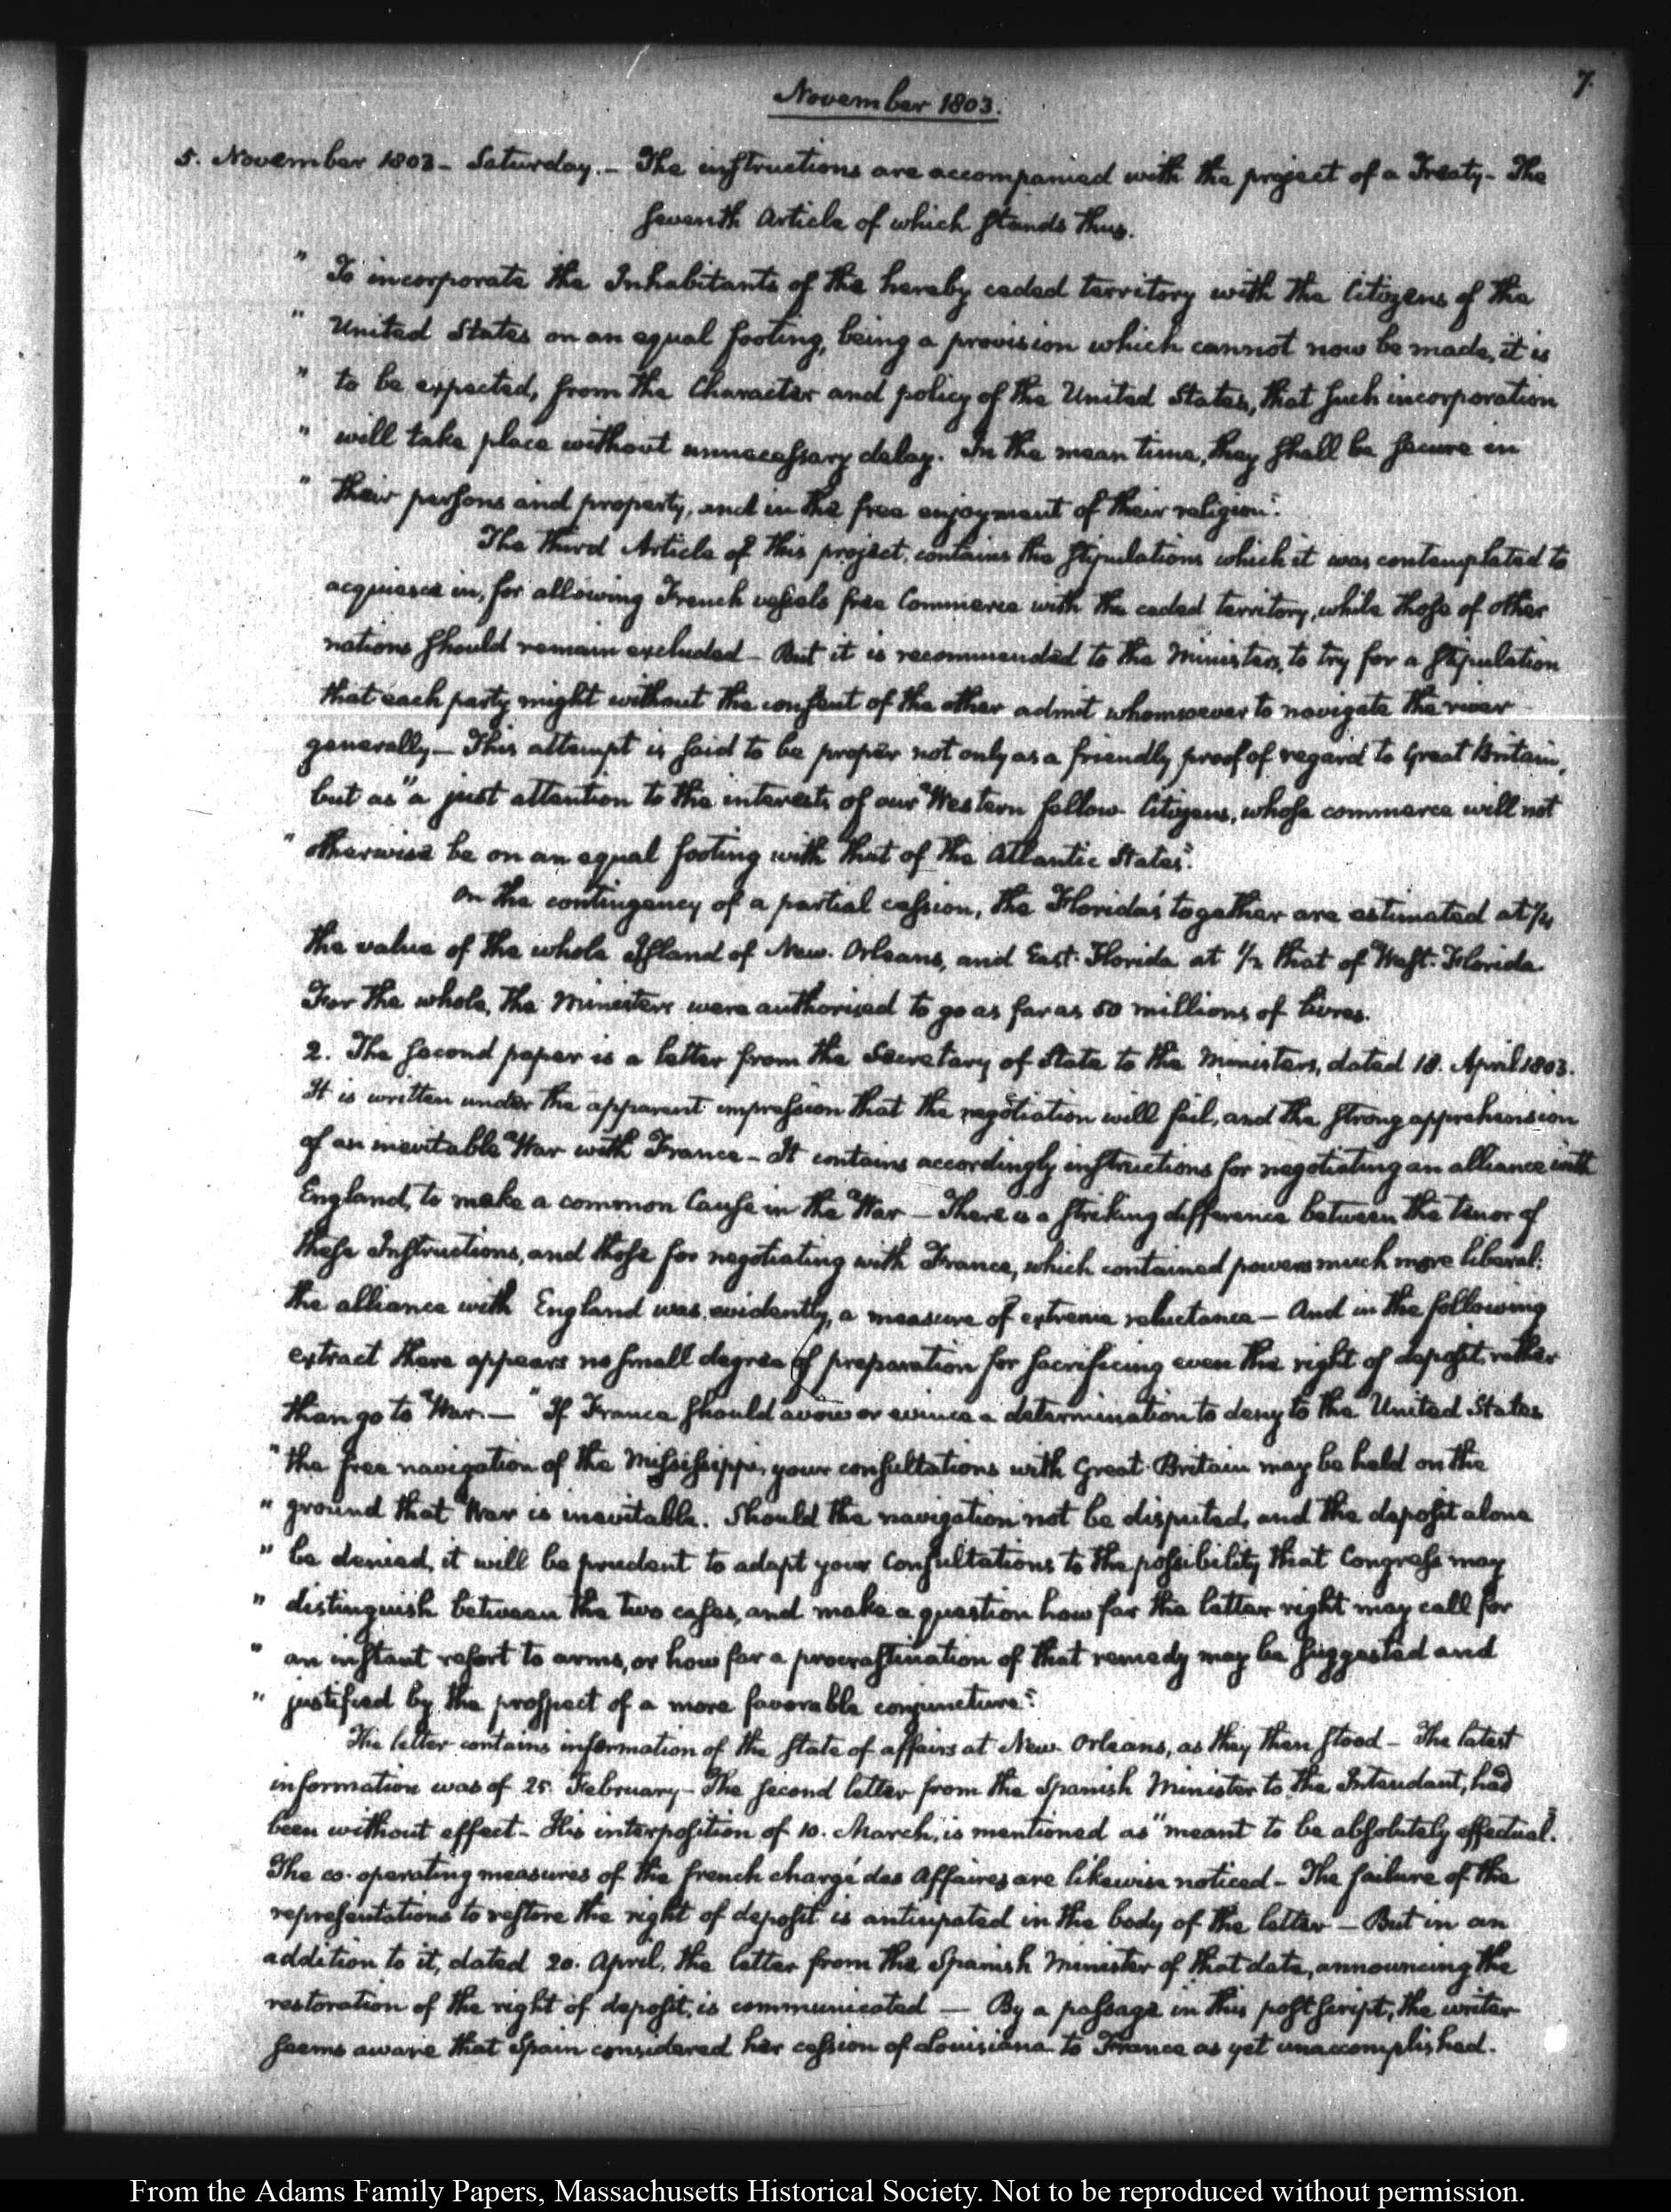 7.
November 1803.
5. November 1803 - Saturday. - The instructions are accompanied with the project of a Treaty - The
seventh Article of which stands thus.
" To incorporate the Inhabitants of the hereby ceded territory with the Citizens of the
" United States on an equal footing, being a provision which cannot now be made, it is
" to be expected, from the Character and policy of the United States, that such incorporation
" will take place without unnecessary delay. In the mean time, they shall be secure in
" their persons and property, and in the free enjoyment of their religion."
The third Article of this project, contains the stipulations which it was contemplated to
acquiesce in, for allowing French vessels free Commerce with the ceded territory, while those of other
nations should remain excluded - But it is recommended to the Ministers, to try for a stipulation
that each party might without the consent of the other admit whomsoever to navigate the river
generally - This attempt is said to be proper not only as a friendly proof of regard to Great Britain,
but as "a just attention to the interests of our Western fellow Citizens, whose commerce will not
" otherwise be on an equal footing with that of the Atlantic States."
On the contingency of a partial cession, the Florida's together are estimated at 1/4
the value of the whole Island of New-Orleans, and East-Florida at 1/2 that of West-Florida
For the whole, the Ministers were authorised to go as far as 50 millions of livres.
2. The second paper is a letter from the Secretary of State to the Ministers, dated 18. April 1803.
It is written under the apparent impression that the negotiation will fail, and the strong apprehension
of an inevitable War with France - It contains accordingly instructions for negotiating an alliance with
England, to make a common Cause in the War - There is a striking difference between the tenor of
these Instructions, and those for negotiating with France, which contained powers much more liberal:
the alliance with England was, evidently, a measure of extreme reluctance - And in the following
extract there appears no small degree of preparation for sacrificing even the right of deposit, rather
than go to War. - "If France should avow or evince a determination to deny to the United States
" the free navigation of the Mississippi, your consultations with Great-Britain may be held on the
" ground that War is inevitable. Should the navigation not be disputed, and the deposit alone
" be denied, it will be prudent to adapt your Consultations to the possibility that Congress may
" distinguish between the two cases, and make a question how far the latter right may call for
" an instant resort to arms, or how far a procrastination of that remedy may be suggested and
" justified by the prospect of a more favorable conjuncture."
The letter contains information of the state of affairs at New-Orleans, as they then stood - The latest
information was of 25. February - The second letter from the Spanish Minister to the Intendant, had
been without effect - His interposition of 10. March, is mentioned as "meant to be absolutely effectual."
The co-operating measures of the french chargé des Affaires are likewise noticed - The failure of the
representations to restore the right of deposit is anticipated in the body of the letter - But in an
addition to it, dated 20. April, the letter from the Spanish Minister of that date, announcing the
restoration of the right of deposit, is communicated - By a passage in this postscript, the writer
seems aware that Spain considered her cession of Louisiana to France as yet unaccomplished.
From the Adams Family Papers, Massachusetts Historical Society. Not to be reproduced without permission.